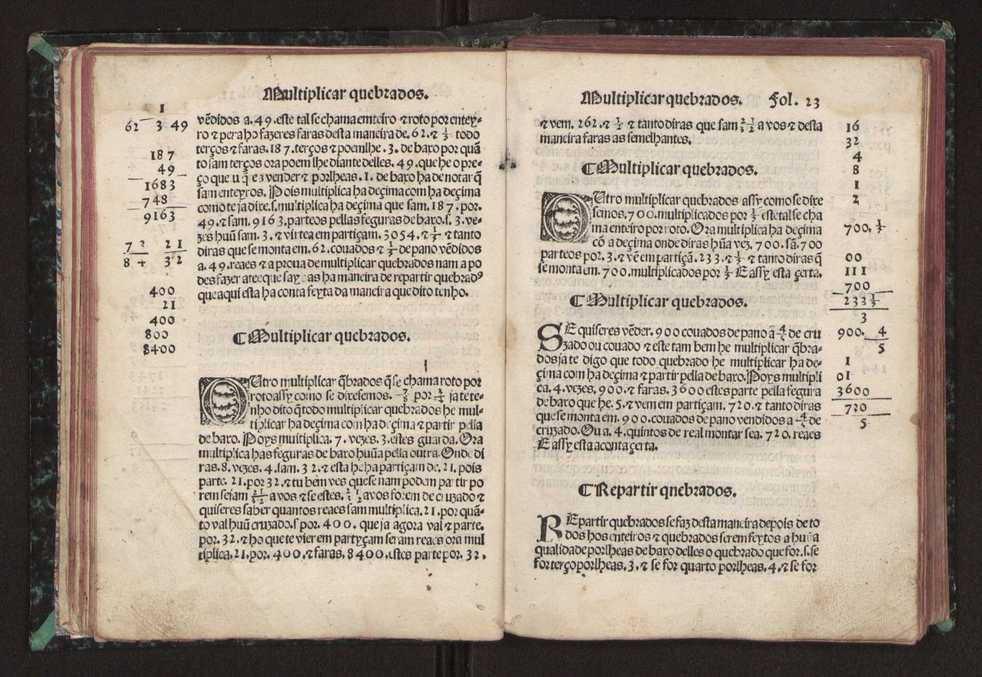 Multiplicar quebrados.
1
62 3 49
187
49
1683
748
9163
7 2 2 1
8 4 3 2
400
21
400
800
8400
vẽdidos a. 49. este tal se chama emteiro ⁊ roto por entey-
ro ⁊ pera ho fazeres faras desta maneira de. 62. ⁊ ⅓ todo
terços ⁊ faras. 187. terços ⁊ poemlhe. 3. de baro por quã
to sam terços ora poem lhe diante delles. 49. que he o pre-
ço que u a vender ⁊ porlheas. 1. de baro ha de notar q̃
sam enteyros. Pois multiplica ha deçima com ha deçima
como te ja dixe. s. multiplica ha deçima que sam. 187. por.
49. ⁊ sam. 9163. parteos pellas feguras de baro. s. 3. ve-
zes huũ sam. 3. ⁊ vir tea em partiçam. 3054. ⁊ ⅓ ⁊ tanto
diras que se monta em. 62. couados ⁊ ⅓ de pano vẽdidos
a. 49. reaes ⁊ a proua de multiplicar quebrados nam a po
des fazer ate que sayas ha maneira de repartir quebrad9
que aqui esta ha conta feyta da maneira que dito tenho.
¶ Multiplicar quebrados.
OUtro multiplicar q̃brados q̃ se chama roto por
roto assy como se dixesemos. ⅞ por ¾ ja te te-
nho dito q̃ todo multiplicar quebrados he mul-
tiplicar ha deçima com ha deçima ⁊ partir pella
de baro. Poys multiplica. 7. vezes. 3. estes guarda. Ora
multiplica has feguras de baro huũa pella outra. Onde di
ras. 8. vezes. 4. sam. 32. ⁊ esta he ha partiçam de. 21. pois
parte. 21. por 32. ⁊ tu bem ves que se nam podem partir po
rem seiam 21/32 avos ⁊ se estes. avos forem de cruzado ⁊
quiseres saber quantos reaes sam multiplica. 21. por quã-
to val huũ cruzado. s. por. 400. que ja agora val ⁊ parte.
por. 32. ⁊ ho que te vier em partyçam seram reaes ora mul
tiplica. 21. por. 400. ⁊ faras. 8400. estes parte por. 32.
Multiplicar quebrados. Fol. 23
⁊ vem. 262. ⁊ ½ ⁊ tanto diras que sam 21/32 avos ⁊ desta
maneira faras as semelhantes.
¶ Multiplicar quebrados.
OUtro multiplicar quebrados assy como se dixe
semos. 700. multiplicados por ⅓ este tal se cha
ma enteiro por roto. Ora multiplica ha deçima
cõ a deçima onde diras hũa vez. 700. sã. 700
parteos por. 3. ⁊ vẽ em partiçã. 233. ⁊ ⅓ ⁊ tanto diras q̃
se monta em. 700. multiplicados por ⅓ E assy esta çerta.
¶ Multiplicar quebrados.
SE quiseres vẽder. 900 couados de pano ã ⅘ de cru
zado ou couado ⁊ este tam bem he multiplicar q̃bra-
dos ja te digo que todo quebrado he multiplicar ha de-
çima com ha deçima ⁊ partir pella de baro. Poys multipli
ca. 4. vezes. 900. ⁊ faras. 3600 estes parte pella fegura
de baro que he. 5. ⁊ vem em partiçam. 720. ⁊ tanto diras
que se monta em. 900. couados de pano vendidos a ⅘ de
cruzado. Ou a. 4. quintos de real montar sea. 720. reaes
E assy esta a conta çerta.
¶ Repartir quebrados.
REpartir quebrados se faz desta maneira depois de to
dos hos enteiros ⁊ quebrados serem feytos a huũa
qualidade porlheas de baro delles o quebrado que for. s. se
for terço porlheas. 3. ⁊ se for quarto porlheas. 4. ⁊ se for
16
32
4
8
1
2
700. ⅓
00
111
700
233 ⅓
3
900. 4
5
1
01
3600
720
5